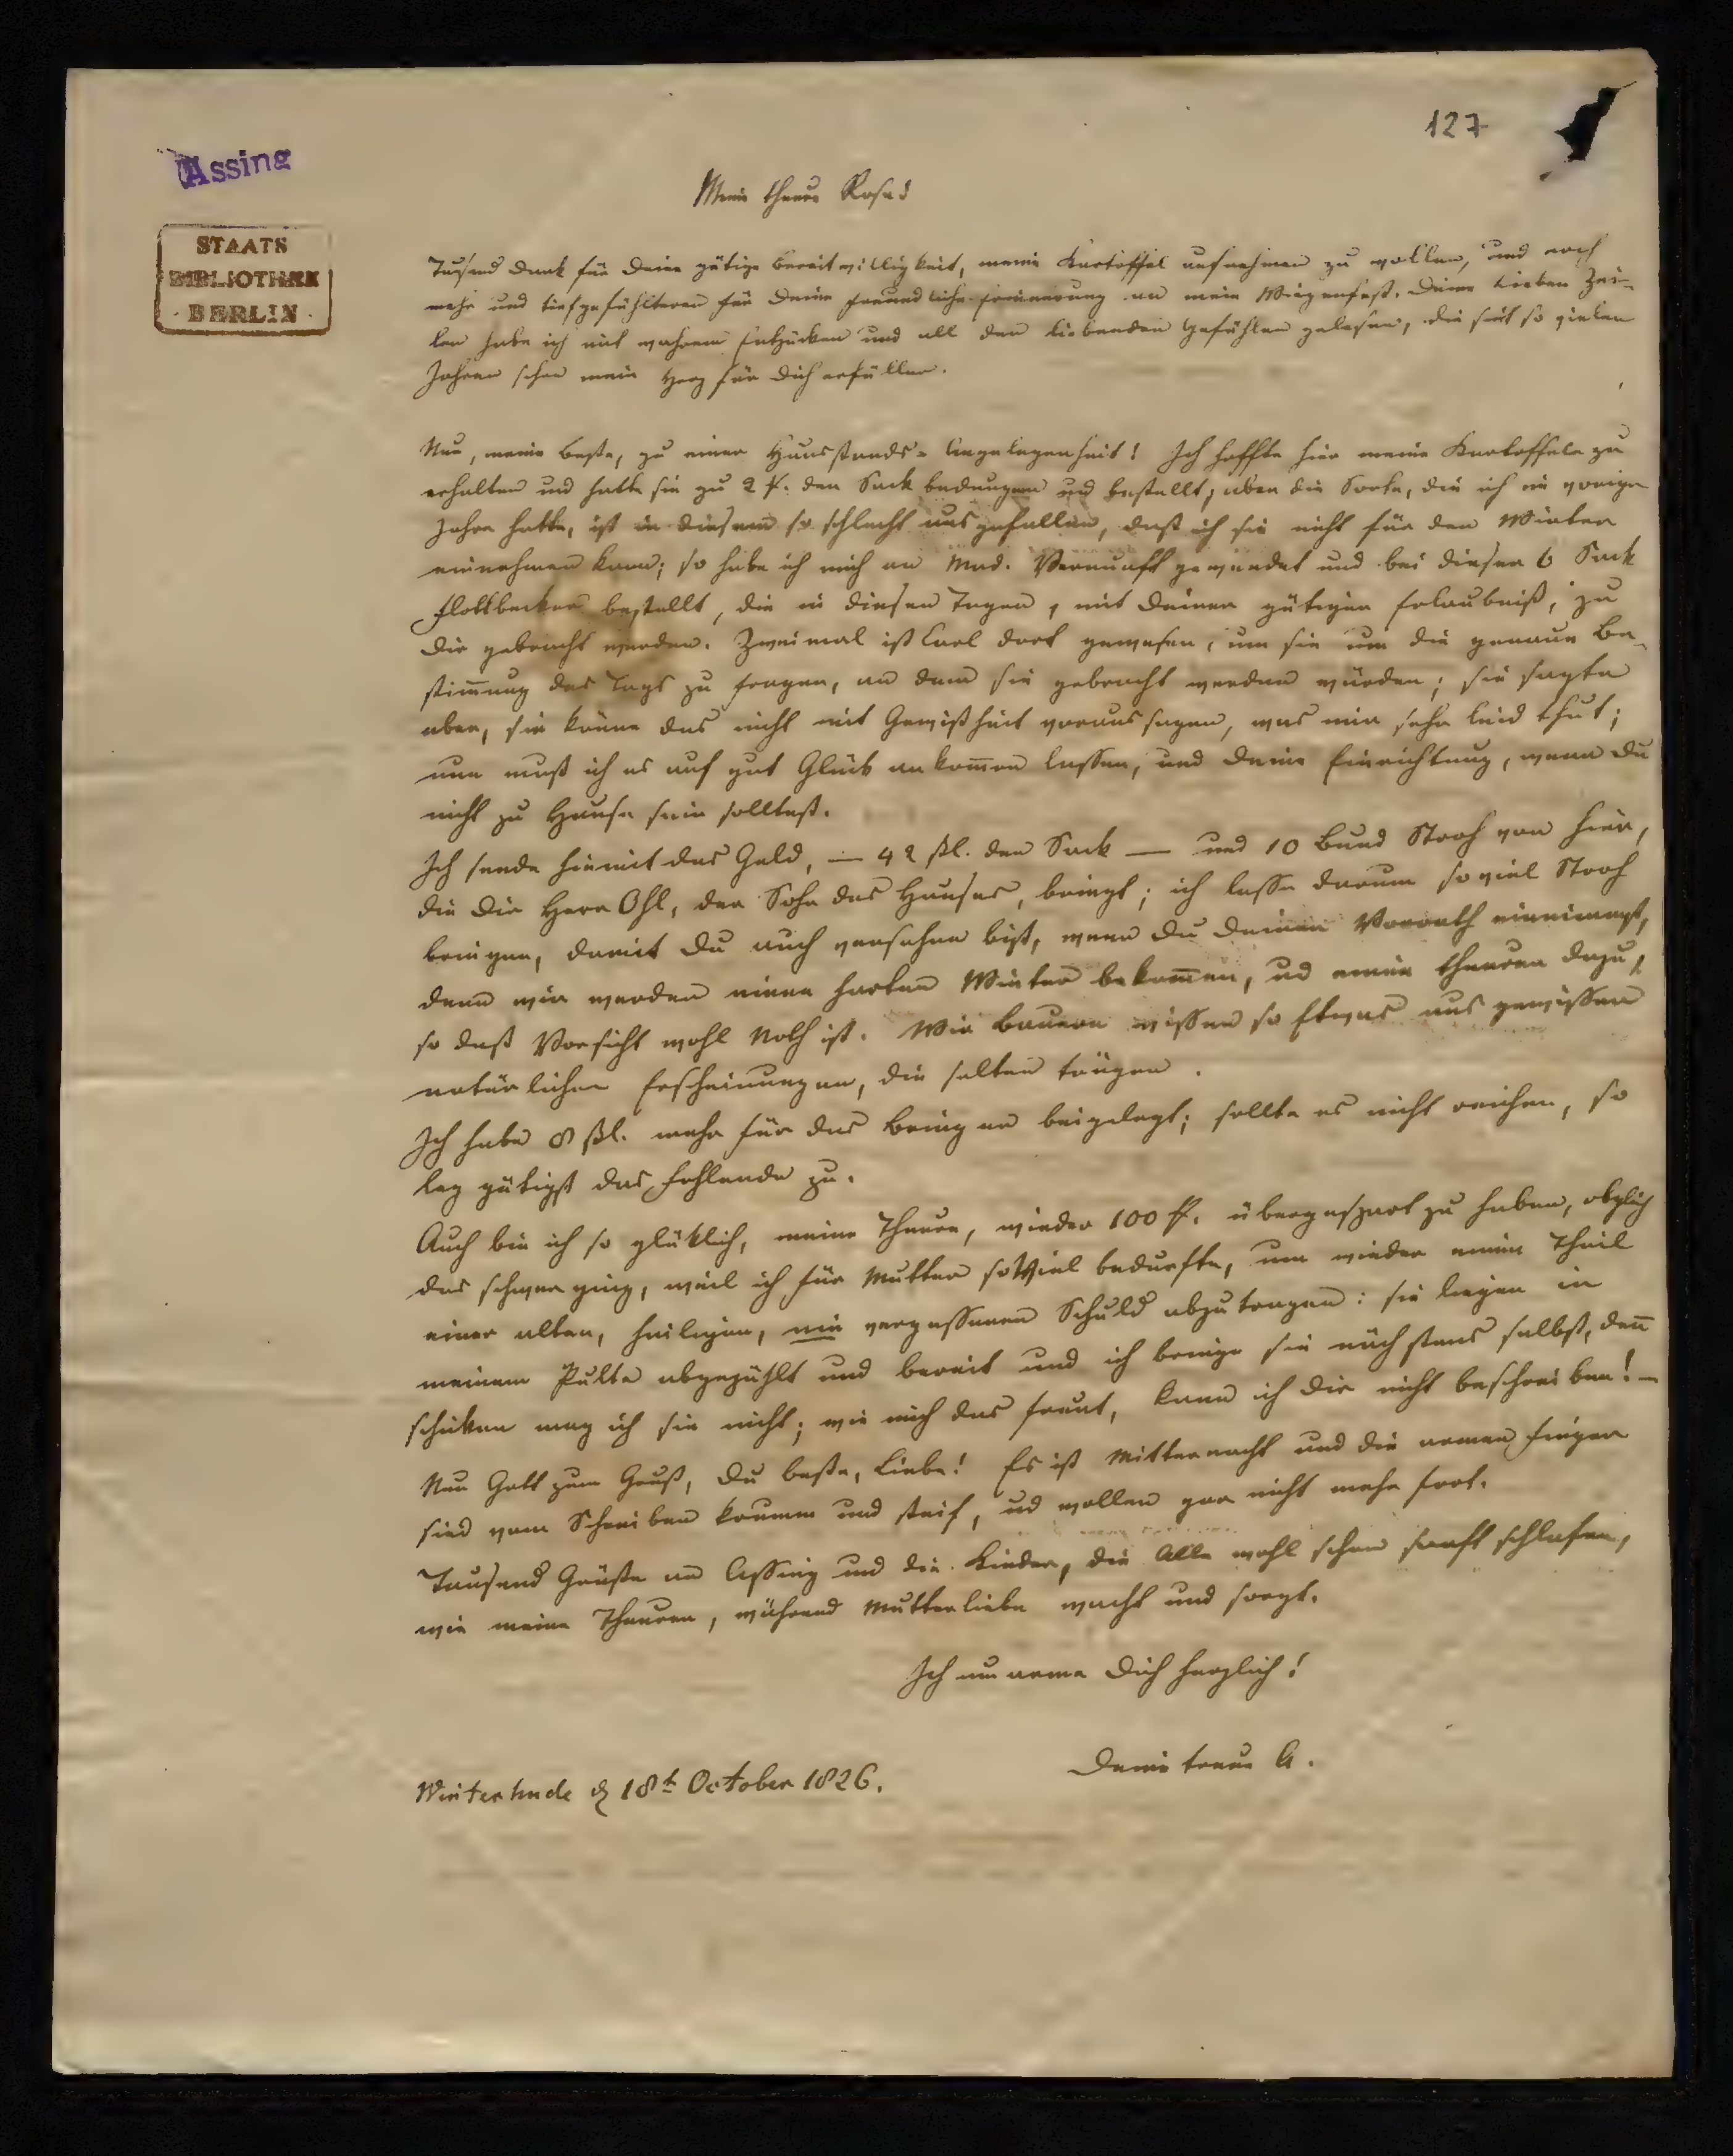 127
Assing
STAATS
BIBLIOTHEK
· BERLIN ·
Meine theure Rosa!
Tausend Dank für Deine gütige Bereitwilligkeit, meine Kartoffel aufnehmen zu wollen, und noch
mehr und tiefgefühlteren für Deine freundliche Erinnerung an mein Wiegenfest. Deine lieben Zei-
len habe ich mit wahrem Entzücken und all den liebenden Gefühlen gelesen, die seit so vielen
Jahren schon mein Herz für Dich erfüllen.
Nun, meine Beste, zu einer Hausstands-Angelegenheit! Ich hoffte hier meine Kartoffeln zu
erhalten und hatte sie zu 2 den Sack bedungen und bestellt; aber die Sorte, die ich im vorigen
Jahre hatte, ist in diesem so schlecht ausgefallen, daß ich sie nicht für den Winter
einnehmen kann; so habe ich mich an Mad. Vernunft gewendet und bei dieser 6 Sack
Flottbecker bestellt, die in diesen Tagen, mit Deiner gütigen Erlaubniß, zu
Dir gebracht werden. Zweimal ist Carl dort gewesen, um sie um die genaue Be-
stimmung des Tags zu fragen, an dem sie gebracht werden würden; sie sagte
aber, sie könne das nicht mit Gewißheit voraussagen, was mir sehr leid thut;
nun muß ich es auf gut Glück ankom̅en lassen, und Deine Einrichtung, wenn Du
nicht zu Hause sein solltest.
Ich sende hiemit das Geld, — 42 ßl. den Sack — und 10 Bund Stroh von hier,
die Dir Herr Ohl, der Sohn des Hauses, bringt; ich lasse darum soviel Stroh
bringen, damit Du auch versehen bist, wenn Du Deinen Vorrath einnimmst,
denn wir werden einen harten Winter bekom̅en, ud einen theuren dazu,
so daß Vorsicht wohl Noth ist. Wir Bauern wissen so Etwas aus gewissen
natürlichen Erscheinungen, die selten trügen.
Ich habe 8 ßl. mehr für das Bringen beigelegt; sollte es nicht reichen, so
leg gütigst das Fehlende zu.
Auch bin ich so glüklich, meine Theure, wieder 100 übergespart zu haben, obglich
das schwer ging, weil ich für Mutter soViel bedurfte, um wieder einen Theil
einer alten, heiligen, nie vergessenen Schuld abzutragen: sie liegen in
meinem Pulte abgezählt und bereit und ich bringe sie nächstens selbst, den̅
schicken mag ich sie nicht; wie mich das freut, kann ich Dir nicht beschreiben! —
Nun Gott zum Gruß, Du beste, Liebe! Es ist Mitternacht und die armen Finger
sind vom Schreiben krumm und steif, ud wollen gar nicht mehr fort.
Tausend Grüße an Assing und die Kinder, die Alle wohl schon sanft schlafen,
wie meine Theuren, während Mutterliebe wacht und sorgt.
Ich umarme Dich herzlich!
Deine treue A.
Winterhude d 18t October 1826.